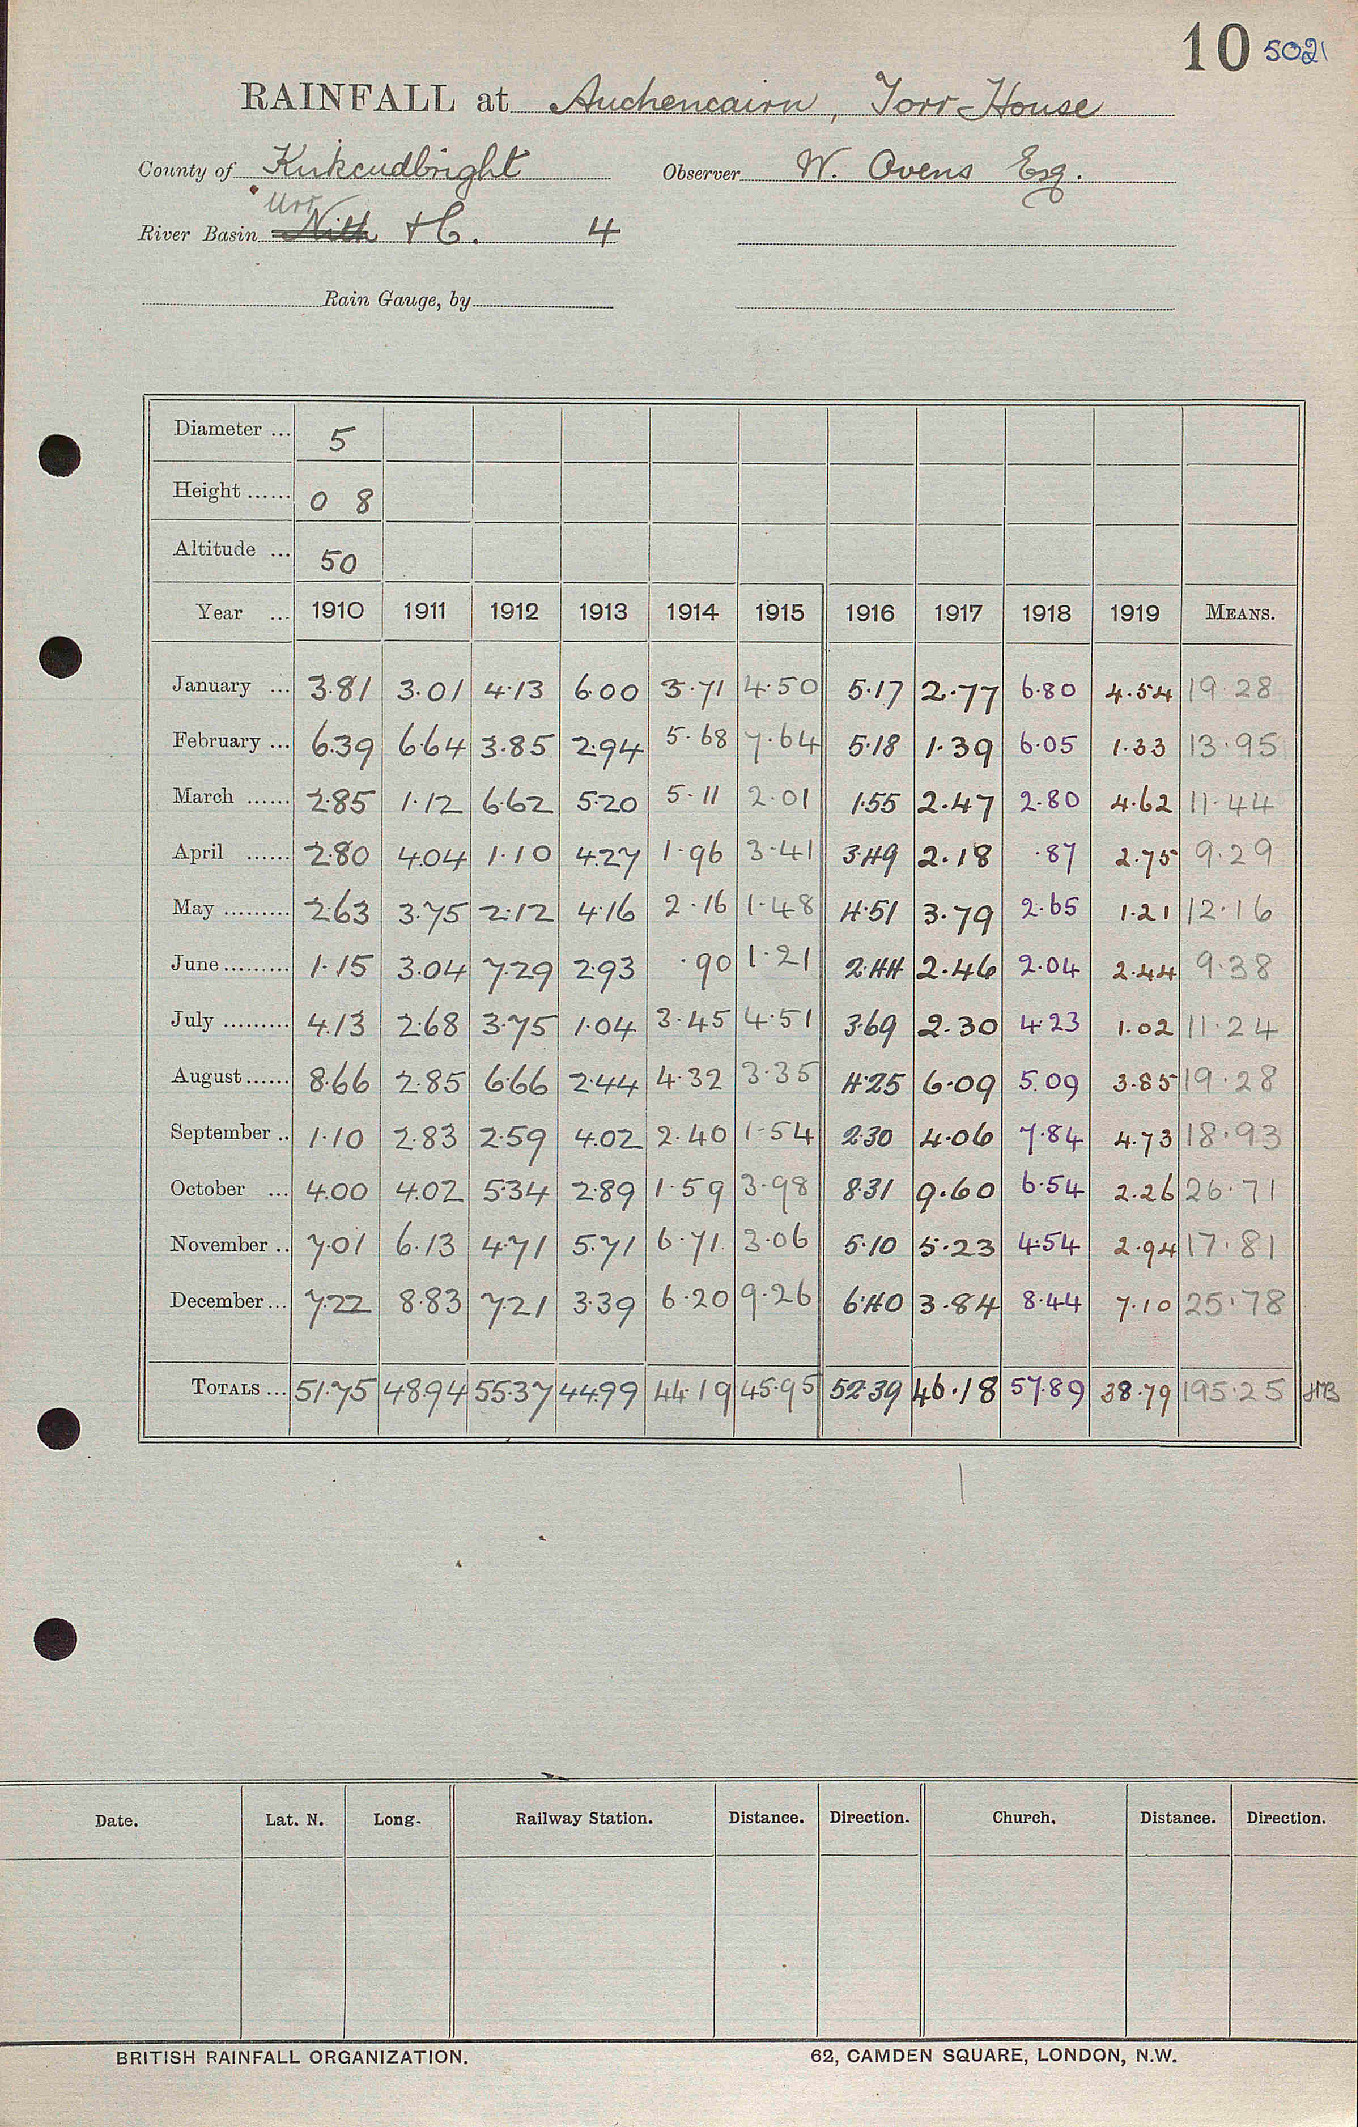 10 5021
RAINFALL at Auchencairn, Torr House
County of Kirkcudbright Observer W. Ovens Esq.
Urr
River Basin Nith +C. 4
Rain Gauge, by
Diameter ... 5
Height ...... 0 8
Altitude ... 50
Year ... 1910 1911 1912 1913 1914 1915 1916 1917 1918 1919 MEANS.
January ... 3.81 3.01 4.13 6.00 3.71 4.50 5.17 2.77 6.80 4.54 19.28
February ... 6.39 6.64 3.85 2.94 5.68 7.64 5.18 1.39 6.05 1.33 13.95
March ...... 2.85 1.12 6.62 5.20 5.11 2.01 1.55 2.47 2.80 4.62 11.44
April ...... 2.80 4.04 1.10 4.27 1.96 3.41 3.49 2.18 .87 2.75 9.29
May ......... 2.63 3.75 2.12 4.16 2.16 1.48 4.51 3.79 2.65 1.21 12.16
June ......... 1.15 3.04 7.29 2.93 .90 1.21 2.44 2.46 2.04 2.44 9.38
July ......... 4.13 2.68 3.75 1.04 3.45 4.51 3.69 2.30 4.23 1.02 11.24
August ...... 8.66 2.85 6.66 2.44 4.32 3.35 4.25 6.09 5.09 3.85 19.28
September .. 1.10 2.83 2.59 4.02 2.40 1.54 2.30 4.06 7.84 4.73 18.93
October ... 4.00 4.02 5.34 2.89 1.59 3.98 8.31 9.60 6.54 2.26 26.71
November .. 7.01 6.13 4.71 5.71 6.71 3.06 5.10 5.23 4.54 2.94 17.81
December ... 7.22 8.83 7.21 3.39 6.20 9.26 6.40 3.84 8.44 7.10 25.78
TOTALS ... 51.75 48.94 55.37 44.99 44.19 45.95 52.39 46.18 57.89 38.79 195.25
Date. Lat. N. Long. Railway Station. Distance. Direction. Church. Distance. Direction.
BRITISH RAINFALL ORGANIZATION. 62, CAMDEN SQUARE, LONDON, N.W.